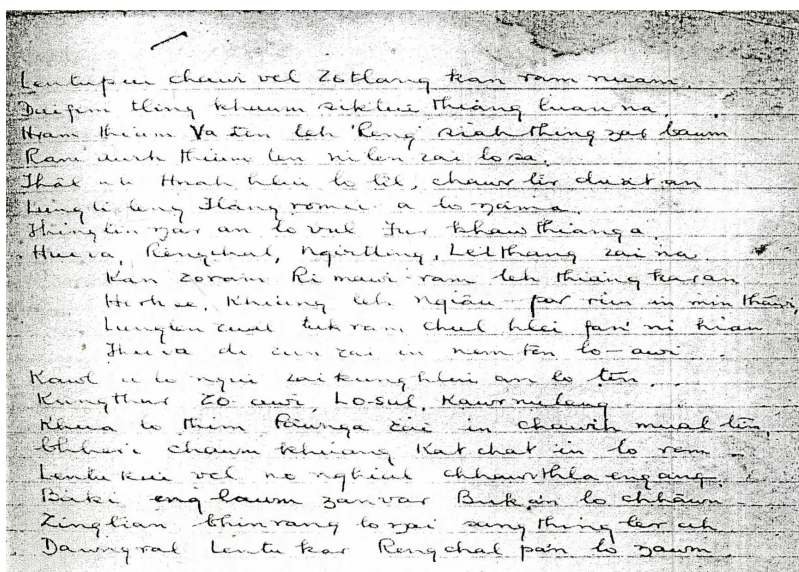 Lentupui chawi vel Zotlang kan ram nuam.
Daifim tling khuum siklui thiang luan na,
Hram thium Va ten leh 'Reng' siahthing zar baum
Ram anh thium len ni len zai lo sa.
Thal Hnah hlui lo lil, chawr ler duat an
Lungti leng Tlang romei a lo zam a.
Thinglen zar an lo vul Fur khaw thianga.
Huiva, Rengchal, Ngirtling, Leithang zai na
Kan zoram Ri mawi ram leh thiang karan
Herh se, Khiang leh Ngiau par rim in min thawi,
Lunglen cual tuk ram chul hlei fan' ni hian
Thuva di zun zai in nem ten lo-awi.
Kawl u lo ngui zai kung hlui an lo ten.
Kungthur Zo awi, Lo-sul, Kawrnulang
Khua lo thim Paunga zai in chawih mual
chawm khuiang Katchat in lo rem
Lentu kui vel no nghial chhawrthla eng ang.
Buki eng laum zanvar Bukan lo chhawn
Zinglian bhinrang lo zai sang thing ler ah
Dawngral Lentu kar Rengchal pan lo zawm.